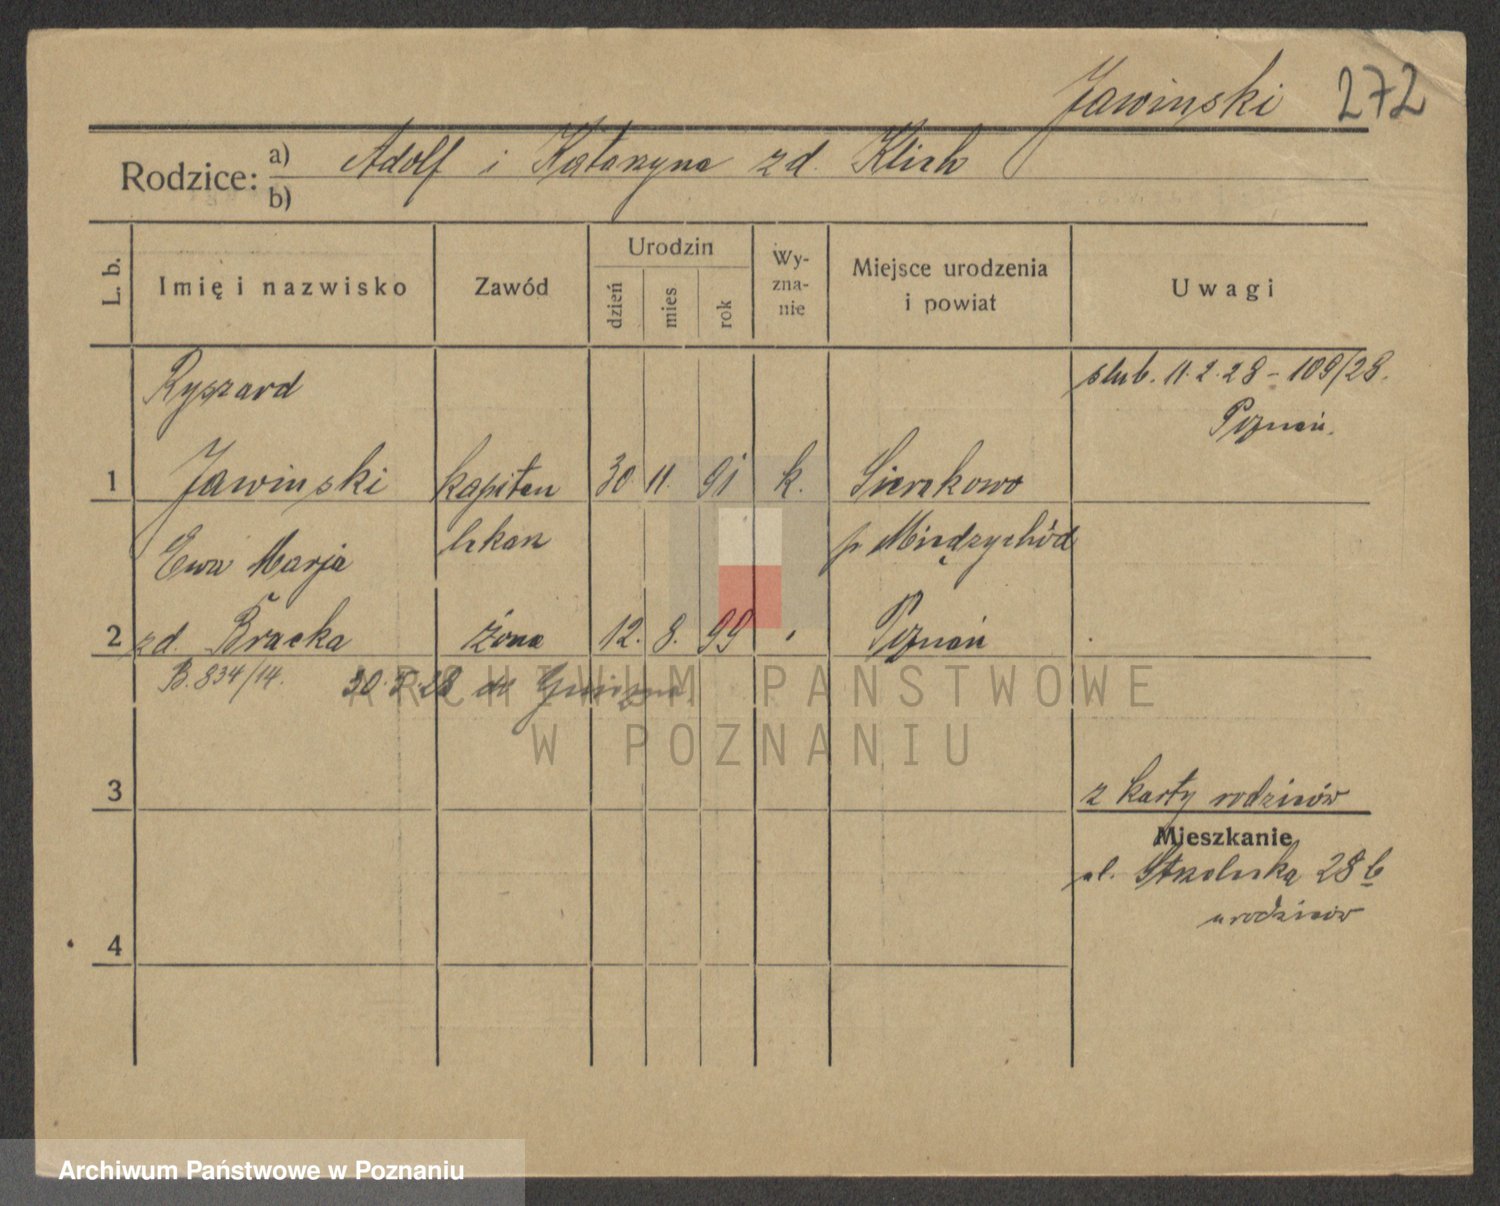 Jawinski 272
Rodzice: a) Adolf i Katarzyna zd. Klich
b)
L. b. Imię i nazwisko Zawód Urodzin dzień mies rok Wy-zna-nie Miejsce urodzenia i powiat Uwagi
Ryszard ślub. 11.2.28 – 109/28.
Poznań.
1 Jawinski kapitan 30 11. 91 k. Sierakowo
Ewa Marja lekarz p. Międzychód
2 zd. Bracka żona 12. 8. 99 Poznań
B. 834/14. 28 do Gniezna
ARCHIWUM PAŃSTWOWE
W POZNANIU
3 z karty rodziców
Mieszkanie
ul. Strzelecka 28 b
u rodziców
4
Archiwum Państwowe w Poznaniu